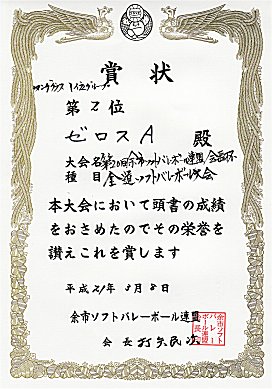 賞状
第2位
ゼロスA 殿
大会名 余市ソフトバレーボール連盟会長杯
種目 全道ソフトバレーボール大会
本大会において頭書の成績
をおさめたのでその栄誉を
讃えこれを賞します
平成21年3月8日
余市ソフトバレーボール連盟
会長
余市ソフト
バレー
ボール連盟